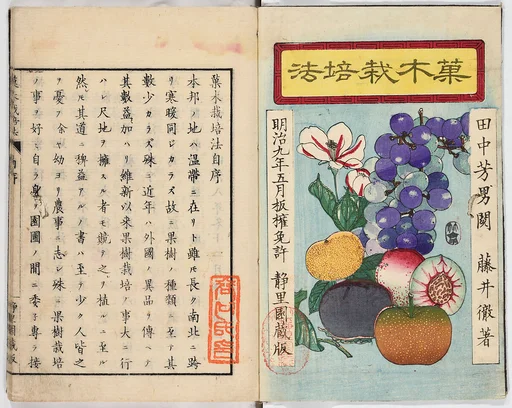 菓木栽培法
田中芳男閲 藤井徹著
明治九年五月板権免許 静里園蔵版
菓木栽培法自序
本邦ノ地ハ温帯ニ在リト雖モ長ク南北ニ跨
リ寒暖同シカラス故ニ果樹ノ種類ニ至テ其
数少カラス殊ニ近年外國ノ異品ヲ傳ヘテ
其數益加ハリ維新以来果樹栽培ノ事大ニ行
ハレ尺地ヲ擁スル者モ競テ之ヲ植ルニ至ル
然レ𪜈其道ニ裨益アルノ書ハ至テ少ク人皆之
ヲ憂フ余幼ヨリ農事ニ志シ殊ニ果樹栽培
ノ事ヲ好ミ自ラ身ヲ園圃ノ間ニ委子専ラ接